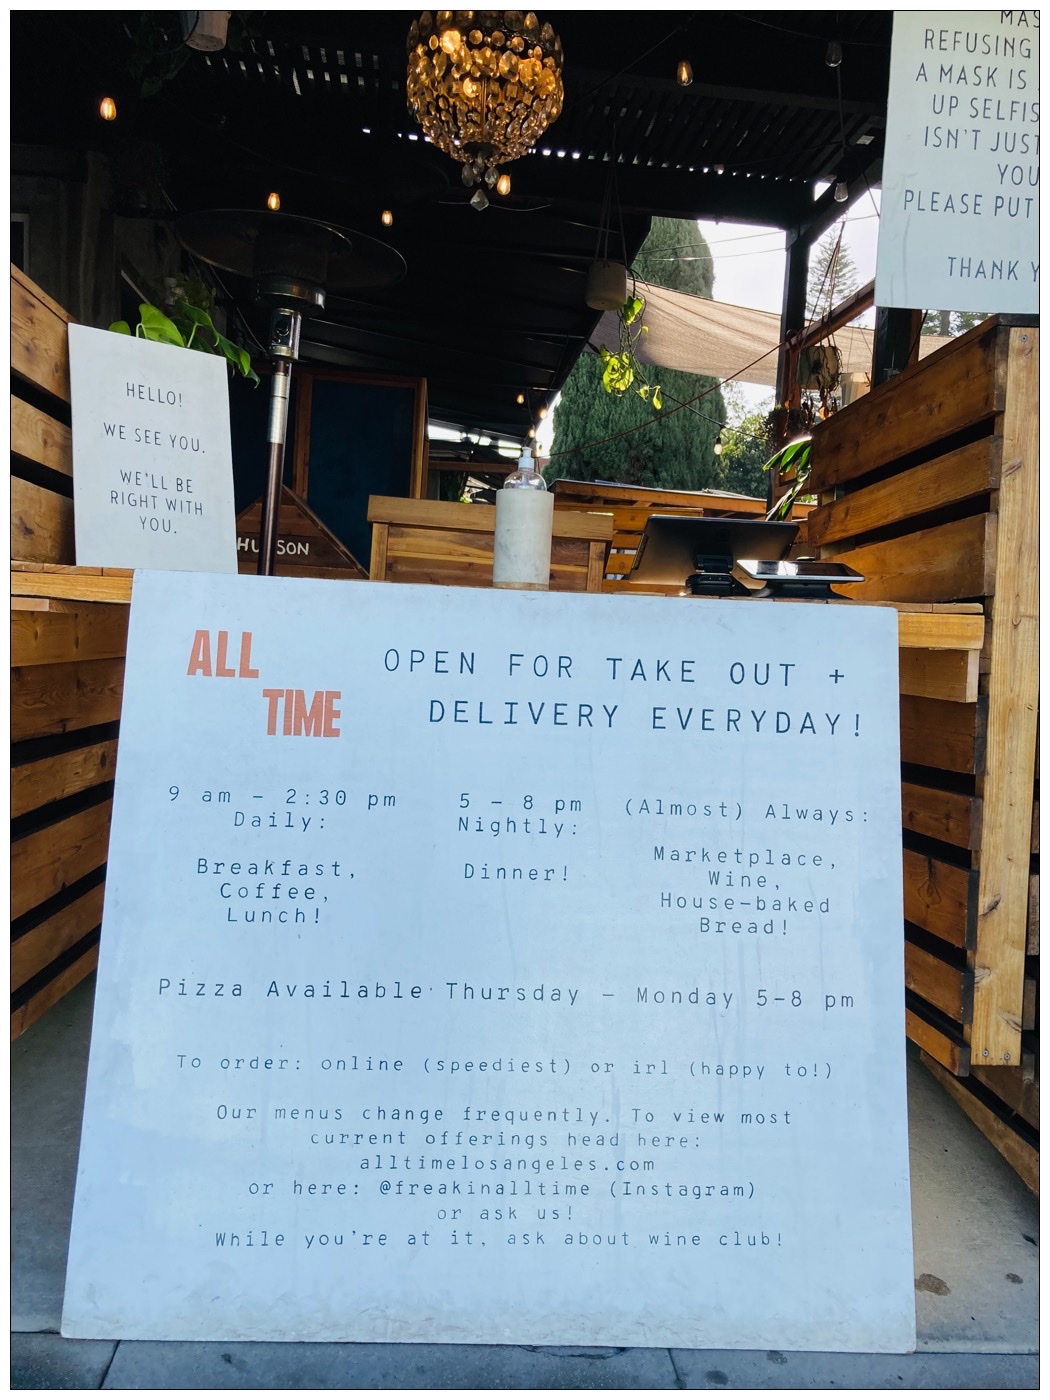 MAS
REFUSING
A MASK IS
UP SELFIS
ISN'T JUST
YOU
PLEASE PUT
THANK Y
HELLO!
WE SEE YOU.
WE'LL BE
RIGHT WITH
YOU.
HUDSON
ALL
TIME
OPEN FOR TAKE OUT +
DELIVERY EVERYDAY!
9 am – 2:30 pm
Daily:
Breakfast,
Coffee,
Lunch!
5 – 8 pm
Nightly:
Dinner!
(Almost) Always:
Marketplace,
Wine,
House-baked
Bread!
Pizza Available Thursday – Monday 5-8 pm
To order: online (speediest) or irl (happy to!)
Our menus change frequently. To view most
current offerings head here:
alltimelosangeles.com
or here: @freakinalltime (Instagram)
or ask us!
While you're at it, ask about wine club!